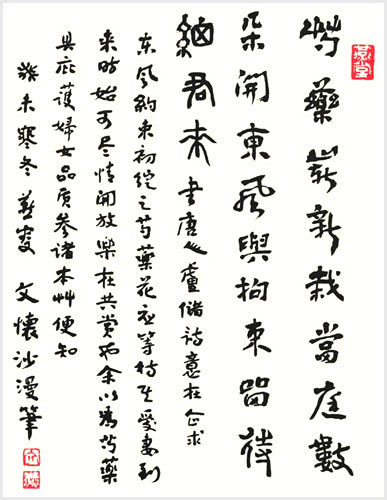 芍藥嶄新栽當庭數
朵開東風與拘束留待
細君來 書唐人盧儲詩意在企求
東風約束初綻之芍藥花应等待其愛妻到
来时始可尽情開放樂在共賞也余以为芍藥
具庇護婦女品质參諸本艸便知
癸未寒冬燕叟 文懷沙漫筆